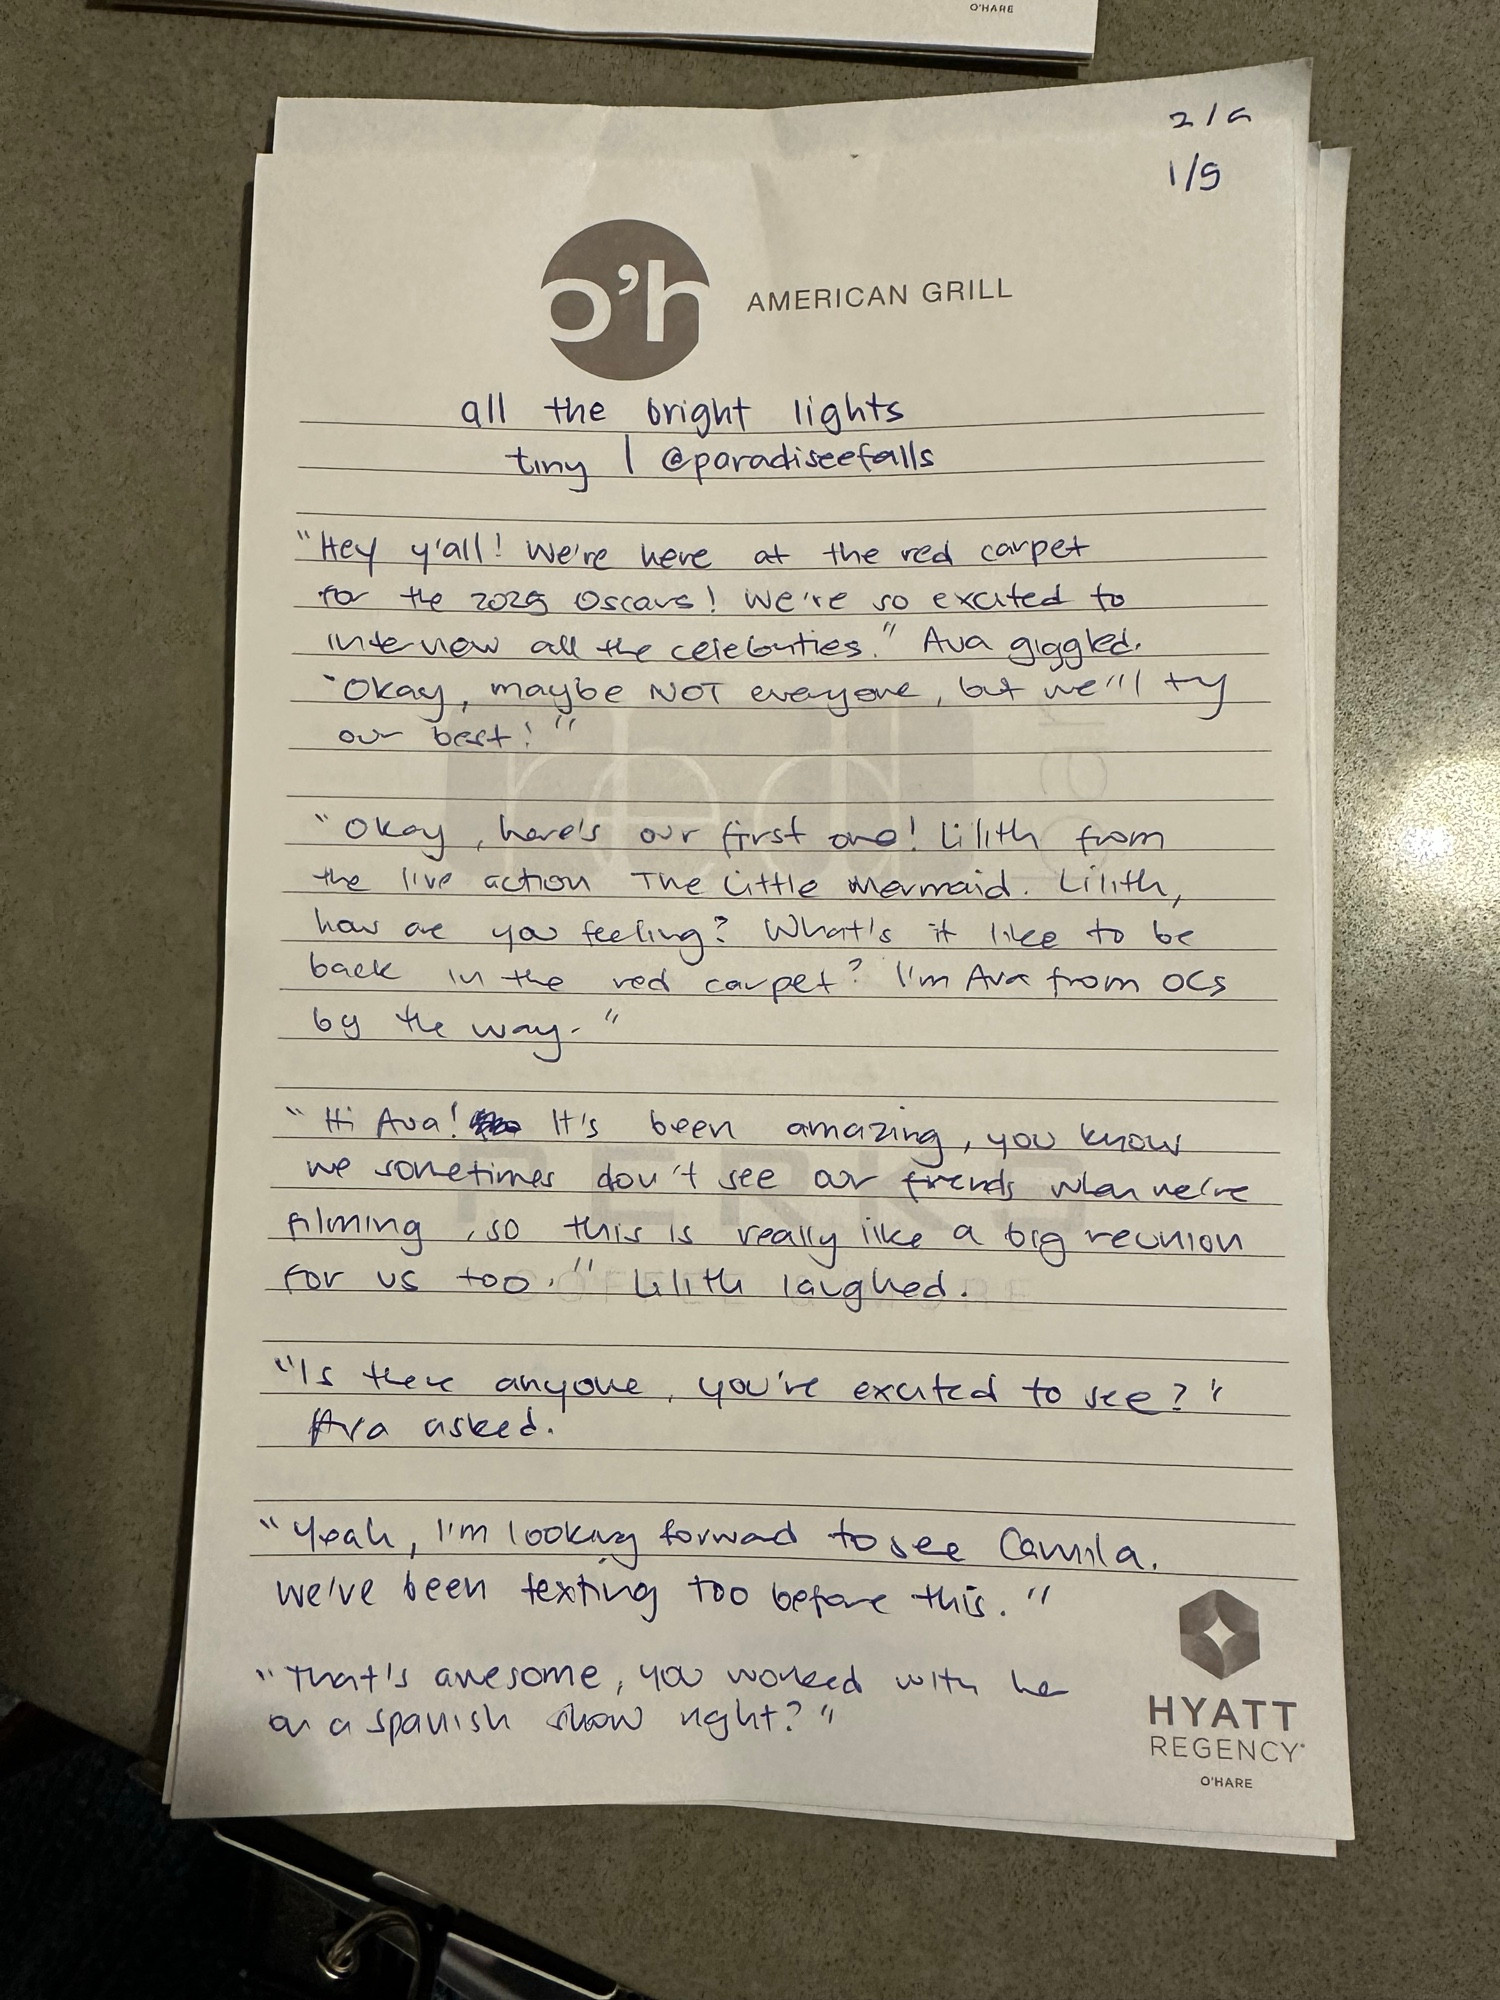 O'HARE
2/6
1/5
o'h AMERICAN GRILL
all the bright lights
tiny | @paradiseefalls
"Hey y'all! We're here at the red carpet
for the 2025 Oscars! We're so excited to
interview all the celebrities." Ava giggled.
"Okay, maybe NOT everyone, but we'll try
our best!"
"Okay, here's our first one! Lilith from
the live action The Little Mermaid. Lilith,
how are you feeling? What's it like to be
back in the red carpet? I'm Ava from OCs
by the way."
"Hi Ava! It's been amazing, you know
we sometimes don't see our friends when we're
filming, so this is really like a big reunion
for us too." Lilith laughed.
"Is there anyone, you're excited to see?"
Ava asked.
"Yeah, I'm looking forward to see Camila.
We've been texting too before this."
"That's awesome, you worked with her
on a spanish show right?"
HYATT
REGENCY
O'HARE